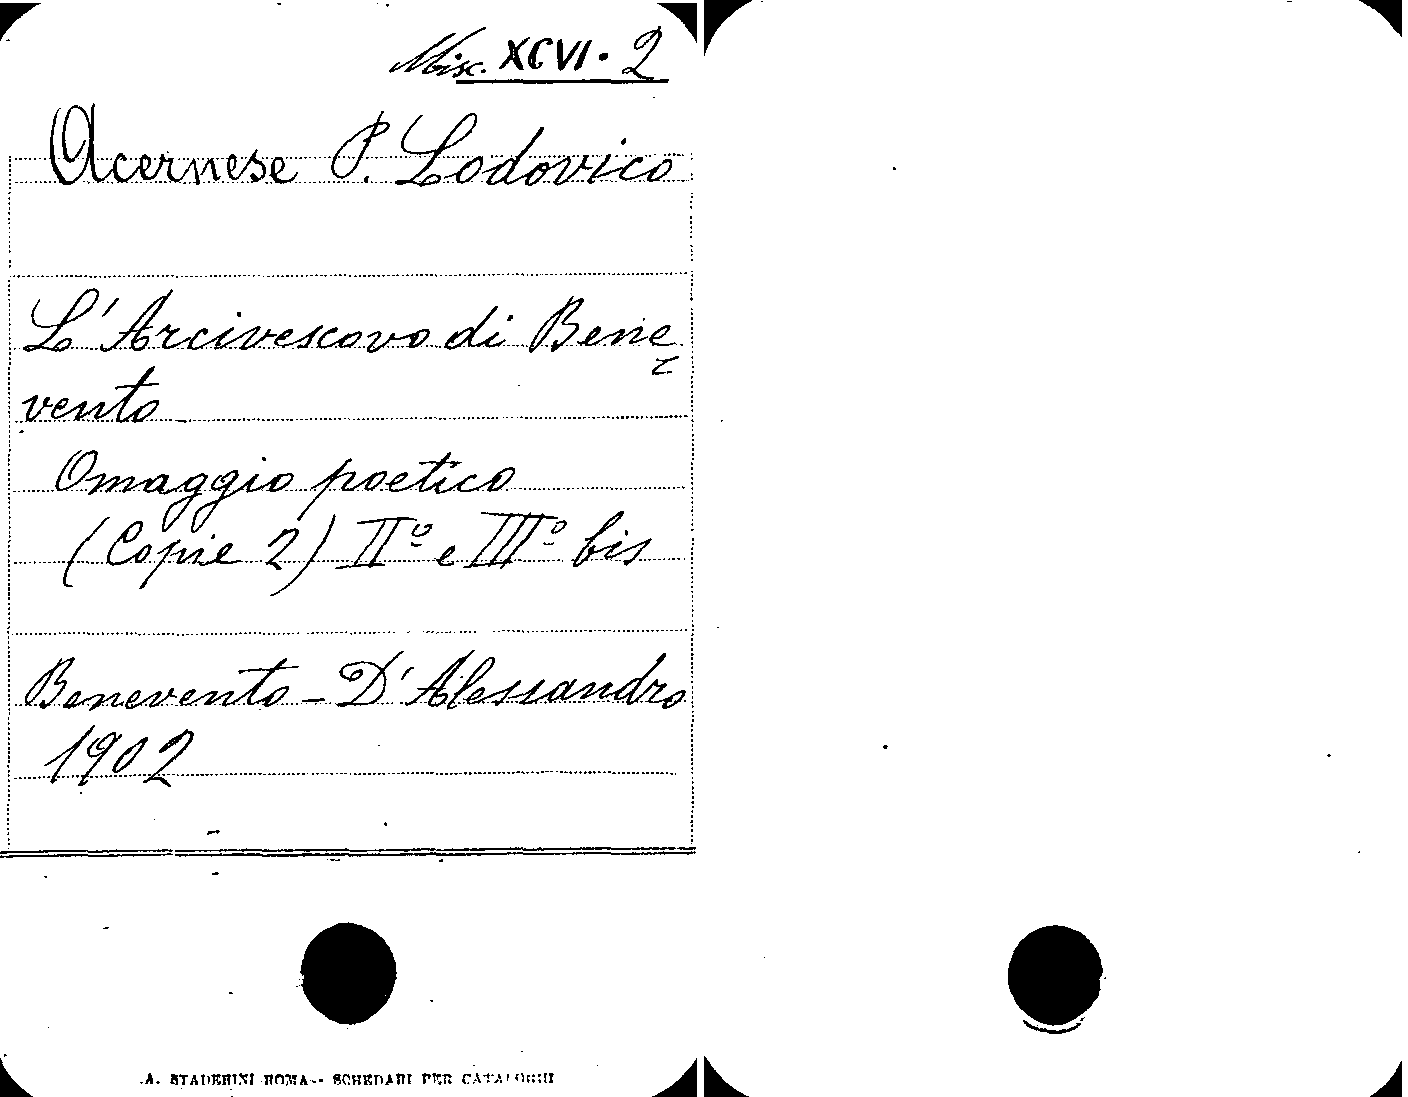 Misc. XCVI. 2
Acernese P. Lodovico
L'Arcivescovo di Bene=
vento
Omaggio poetico
(Copie 2) IIº e IIIº bis
Benevento - D'Alessandro
1902
A. STADERINI ROMA - SCHEDARI PER CATALOGHI